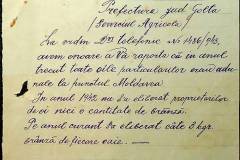 Prefectura jud. Golta
/Serviciul Agricol/
La ordin Dvs telefonic No 1486/943,
avem onoare a Vă raporta că in anul
trecut toate oile particularilor erau adu-
nate la punctul Moldovca
In anul 1942 nu s'a eliberat proprietarilor
de oi nici o cantitate de brânză.
Pe anul curent s'a eliberat câte 3 kgr.
brânză de fiecare oaie. —